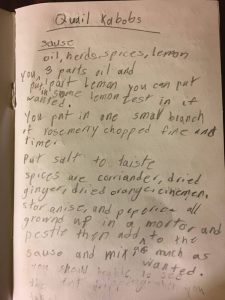 Quail Kabobs
sause
oil, herds, spices, lemon
You, 3 parts oil and
part lemon you can put
in some lemon zest in it
wanted.
You put in one small branch
of rosemerry chopped fine and
time.
Put salt to taiste
spices are corriander, dried
ginger, dried orange, cinemen,
star anise, and peperica all
ground up in a mortor and
pestle then add to the
sause and mix as much as
wanted.
you should